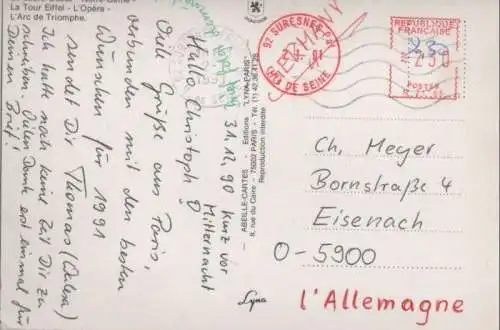 La Tour Eiffel - L'Opéra -
L'Arc de Triomphe.
31.12.90 kurz vor
Mitternacht
Hallo Christoph!
Viele Grüße aus Paris,
verbunden mit den besten
Wünschen für 1991
sendet Dir Thomas
Ich hatte noch keine Zeit Dir zu
schreiben. Vielen Dank erst einmal für
Deinen Brief!
ABEILLE-CARTES - Editions "LYNA-PARIS"
8, rue du Caire - 75002 PARIS - Tél. (1) 42.36.41.28
Reproduction interdite
Lyna
92 SURESNES
HTS DE SEINE
REPUBLIQUE
FRANCAISE
230
POSTES
Ch. Meyer
Bornstraße 4
Eisenach
O-5900
l'Allemagne